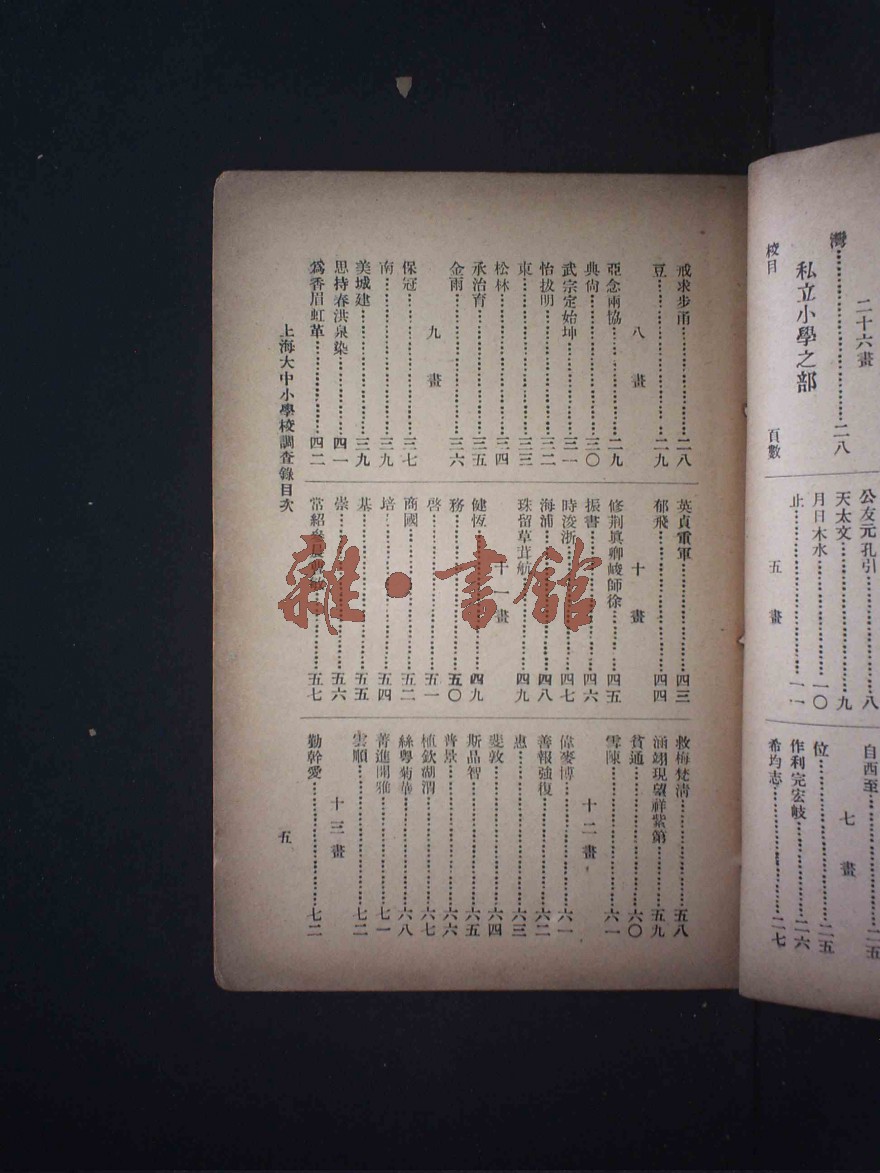 灣……二八
二十六畫
私立小學之部
校目　頁數
公友元孔引……八
天太文……九
月日木水……一〇
止……一一
五畫
自西至……二五
七畫
位……二五
作利完宏岐……二六
希均志……二七
戒求步甬……二八
豆……二九
八畫
亞念兩協……二九
典尙……三〇
武宗定始坤……三一
怡拔明……三二
東……三三
松林……三四
承治育……三五
金雨……三六
九畫
保冠……三七
南……三九
美城建……三九
思持春洪泉染……四一
爲香眉虹革……四二
英貞重軍……四三
郁飛……四四
十畫
修荆眞卿峻師徐……四五
振書……四六
時浚浙……四七
海浦……四八
珠留草茸航……四九
十一畫
健恆……四九
務……五〇
啓……五一
商國……五二
培……五四
基……五五
崇……五六
常紹……五七
救梅梵清……五八
涵翊現望祥紫第……五九
貧通……六〇
雪陳……六一
十二畫
偉麥博……六一
善報強復……六二
惠……六三
斐敦……六四
斯品智……六五
普景……六六
植欽湖渭……六七
絲粵菊華……六八
菁進開雅……七一
雲順……七二
十三畫
勤幹愛……七二
上海大中小學校調查錄目次
五
雜·書館